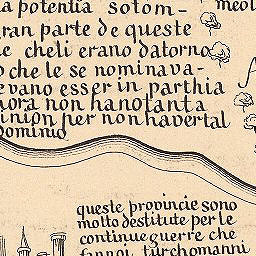 la potentia sotom-
meol
ran parte de queste
e cheli erano datorno
o che le se nominava-
evano esser in parthia
hora non hano tanta
inion per non haver tal
dominio
queste provincie sono
molto destitute per le
continue guerre che
fanno i turchomanni